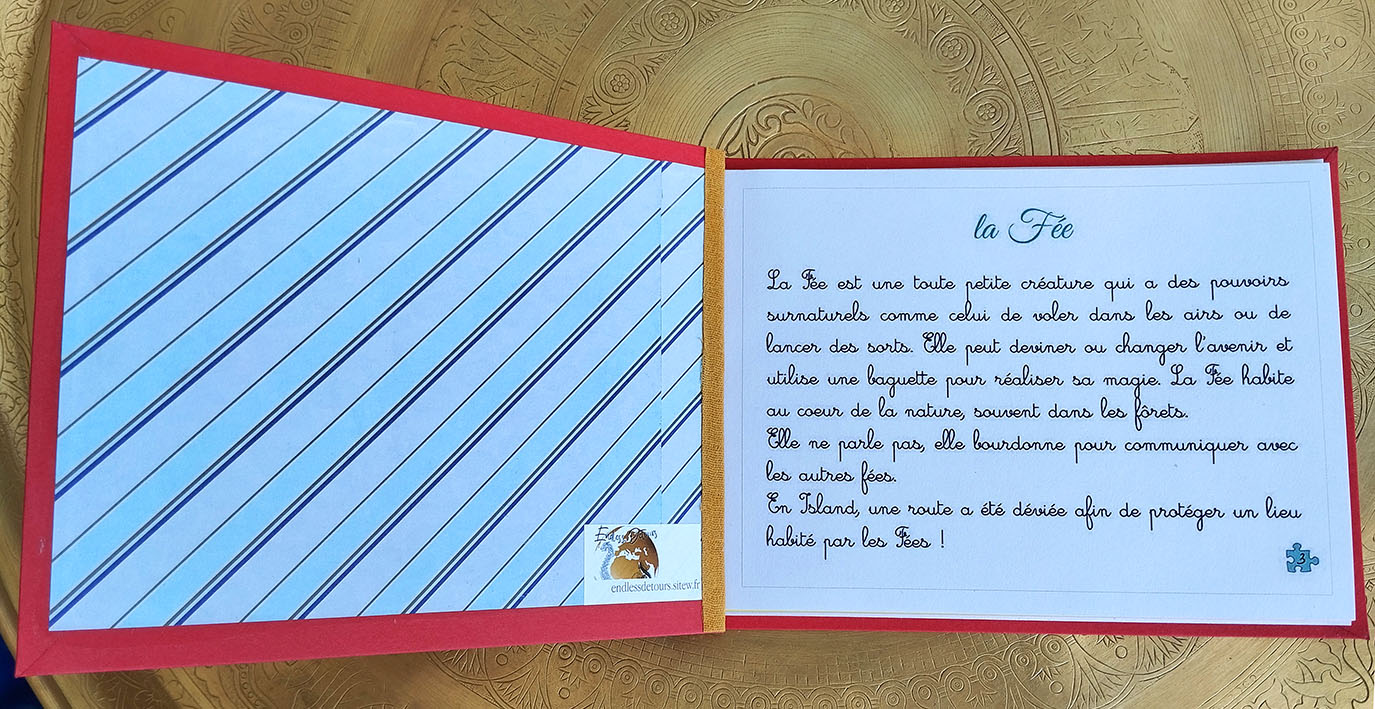 Endless Detours
endlessdetours.sitew.fr
la Fée
La Fée est une toute petite créature qui a des pouvoirs
surnaturels comme celui de voler dans les airs ou de
lancer des sorts. Elle peut deviner ou changer l'avenir et
utilise une baguette pour réaliser sa magie. La Fée habite
au coeur de la nature, souvent dans les fôrets.
Elle ne parle pas, elle bourdonne pour communiquer avec
les autres fées.
En Island, une route a été déviée afin de protéger un lieu
habité par les Fées !
3